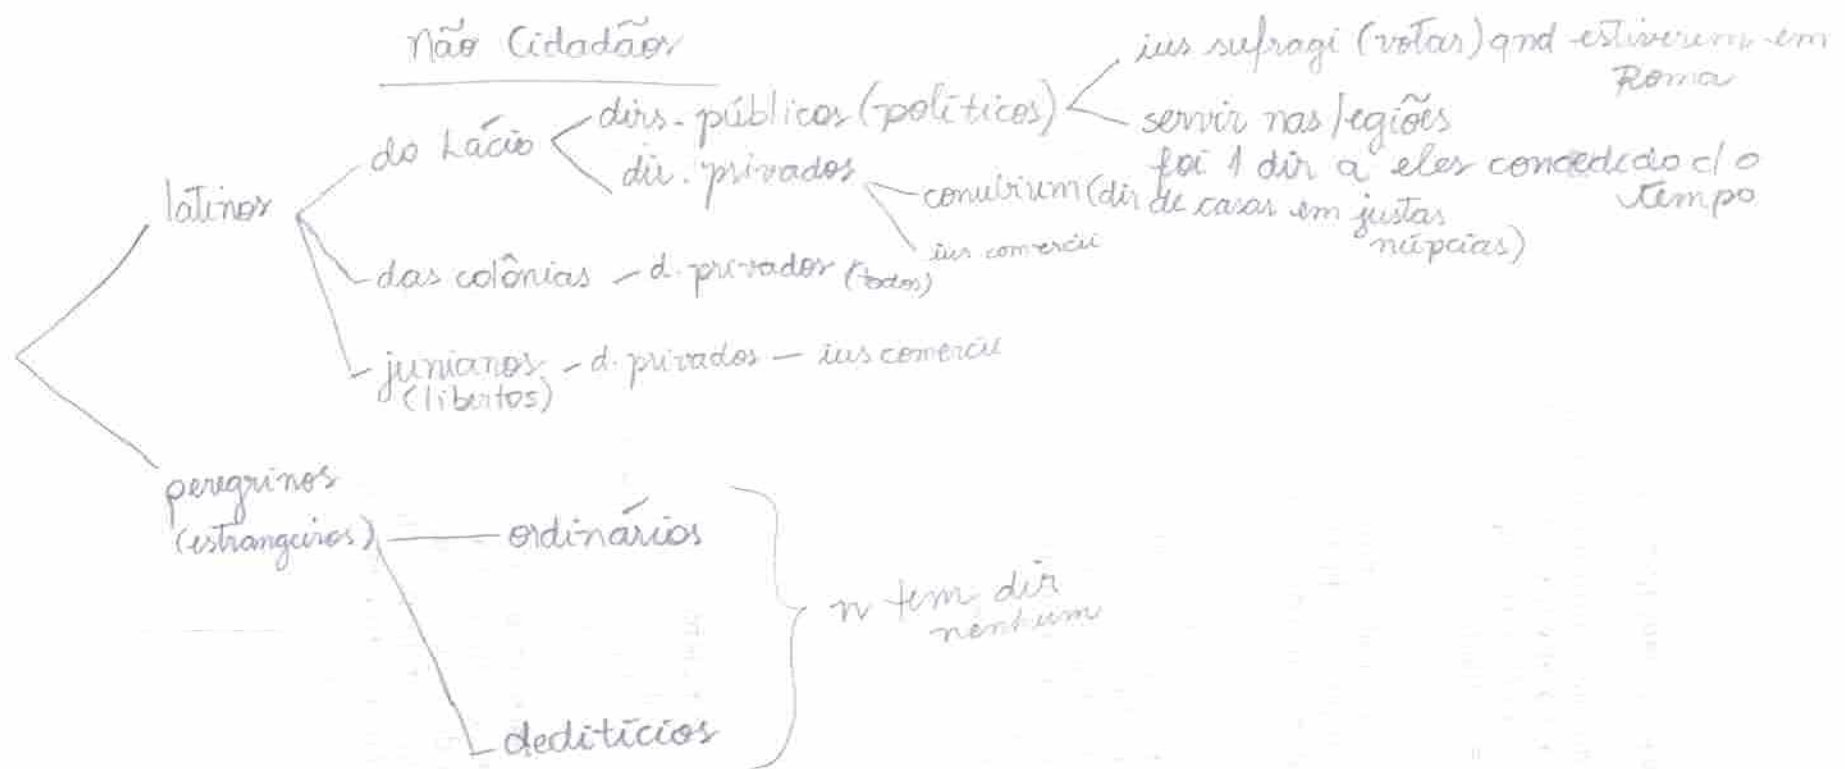 Não Cidadãos
latinos
do Lácio
dirs. públicos (políticos)
ius sufragi (votar) qnd estiverem em
Roma
servir nas legiões
foi 1 dir a eles concedido c/ o
tempo
dir. privados
conubium (dir de casar em justas
núpcias)
ius comercii
das colônias - d. privados (todos)
junianos - d. privados - ius comercii
(libertos)
peregrinos
(estrangeiros)
ordinários
dedítícios
n tem dir
nenhum